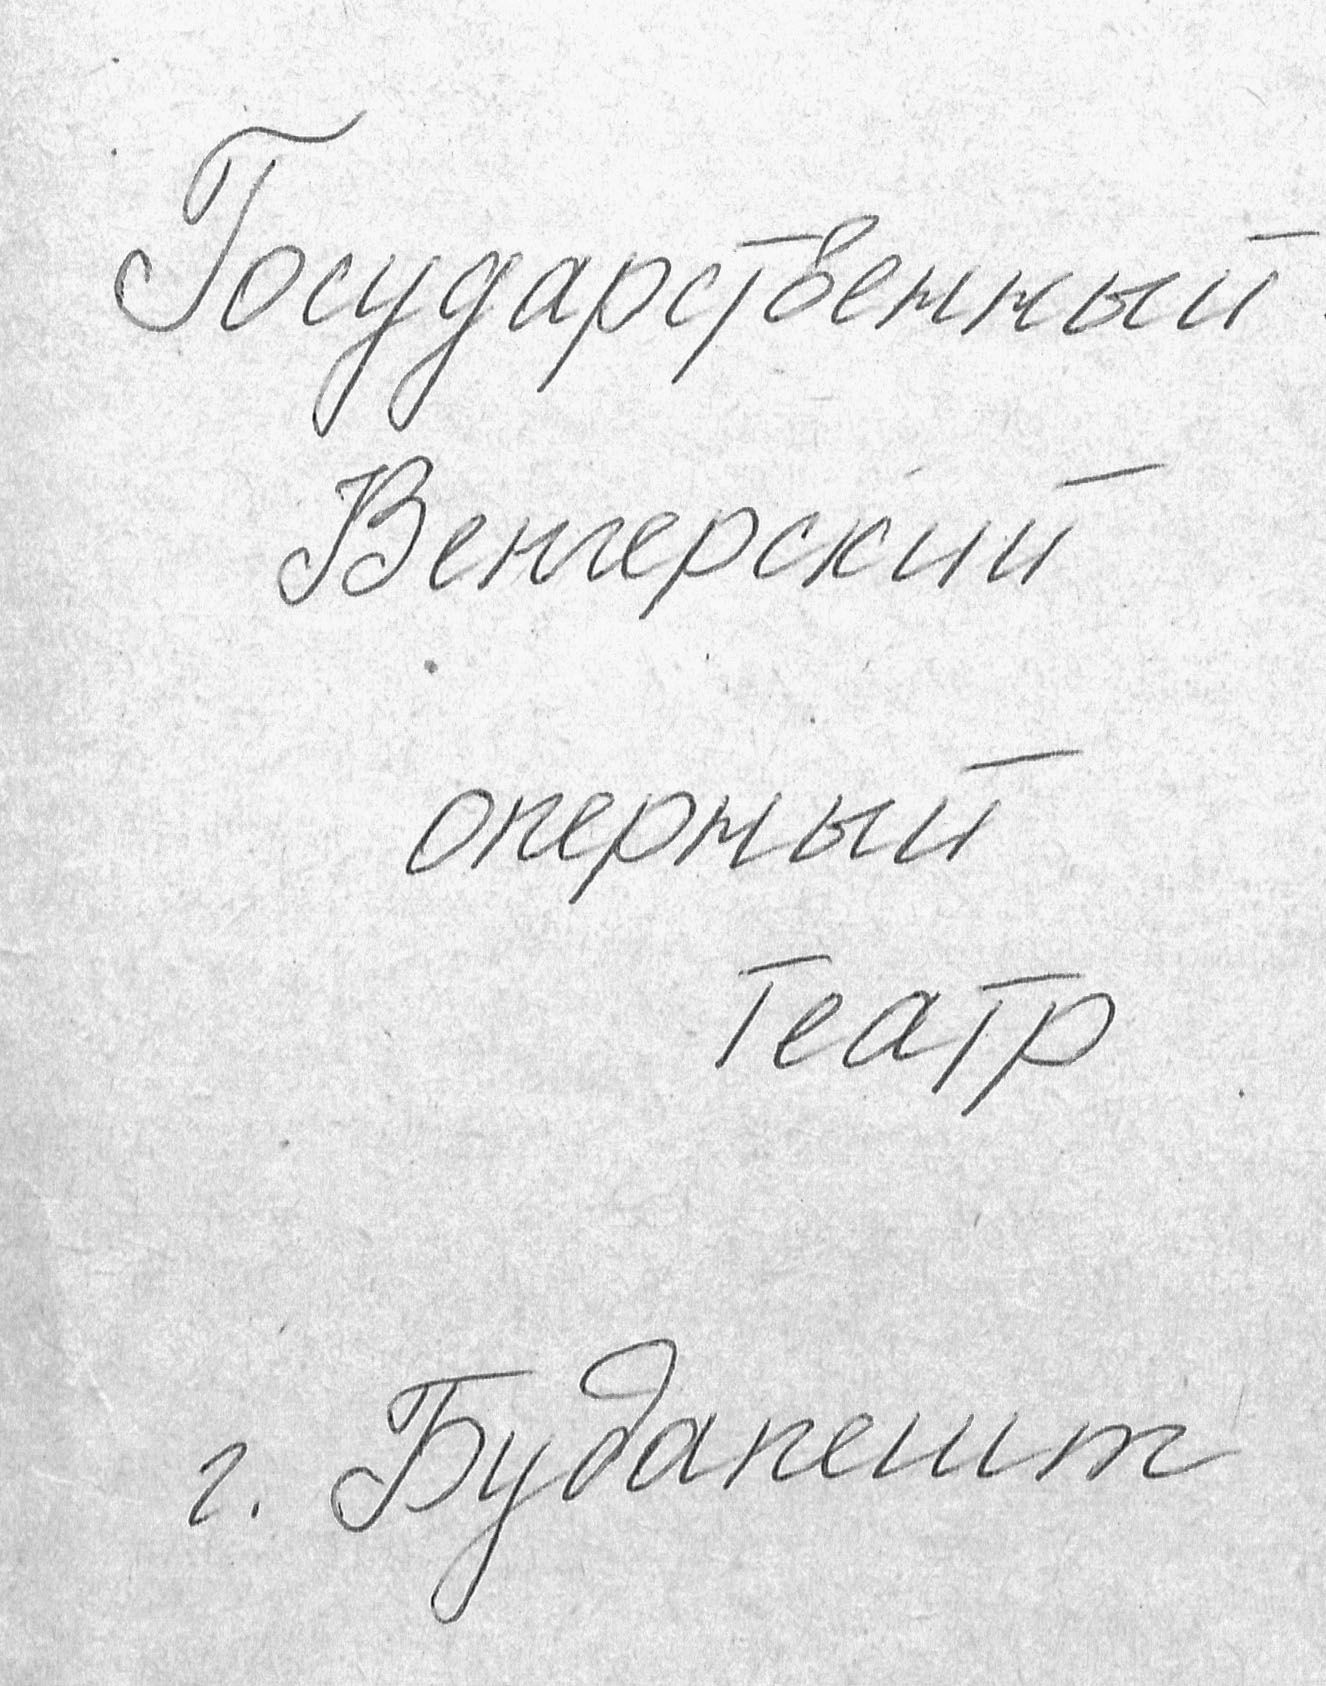 Государственный
Венгерский
оперный
театр
г. Будапешт